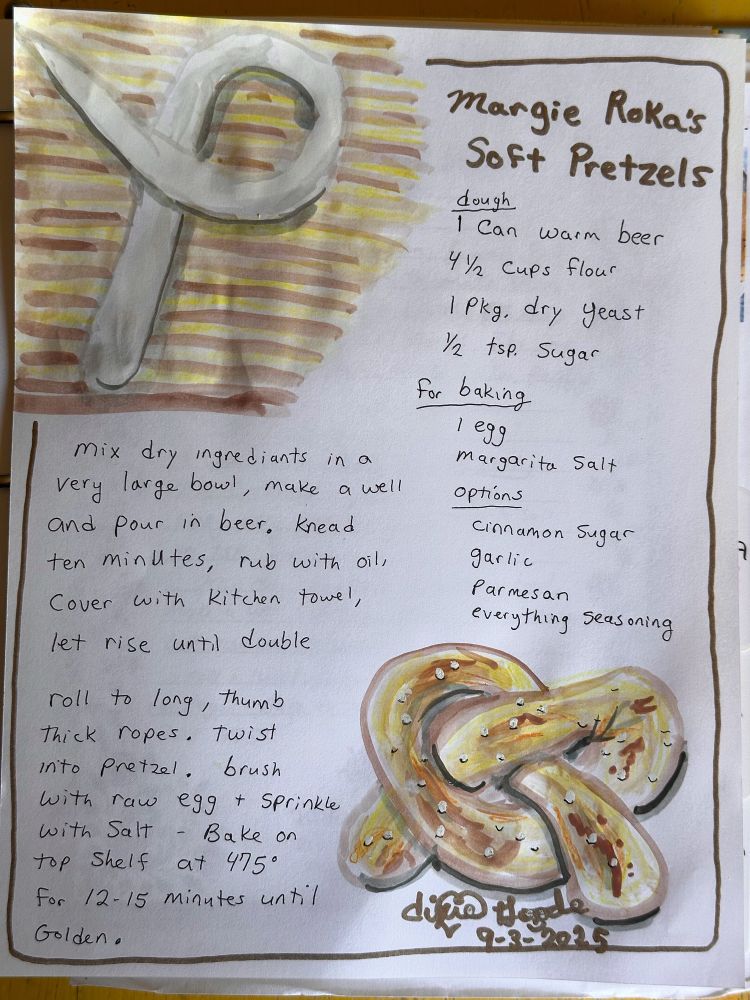 Margie Roka's
Soft Pretzels
dough
1 Can warm beer
4 1/2 Cups flour
1 Pkg. dry yeast
1/2 tsp. Sugar
for baking
1 egg
margarita Salt
options
Cinnamon Sugar
garlic
Parmesan
everything Seasoning
mix dry ingrediants in a
very large bowl, make a well
and pour in beer. Knead
ten minutes, rub with oil,
Cover with Kitchen towel,
let rise until double
roll to long, thumb
thick ropes. Twist
into pretzel. brush
with raw egg + Sprinkle
with Salt - Bake on
top Shelf at 475°
for 12-15 minutes until
Golden.
dixie Goode
9-3-2025